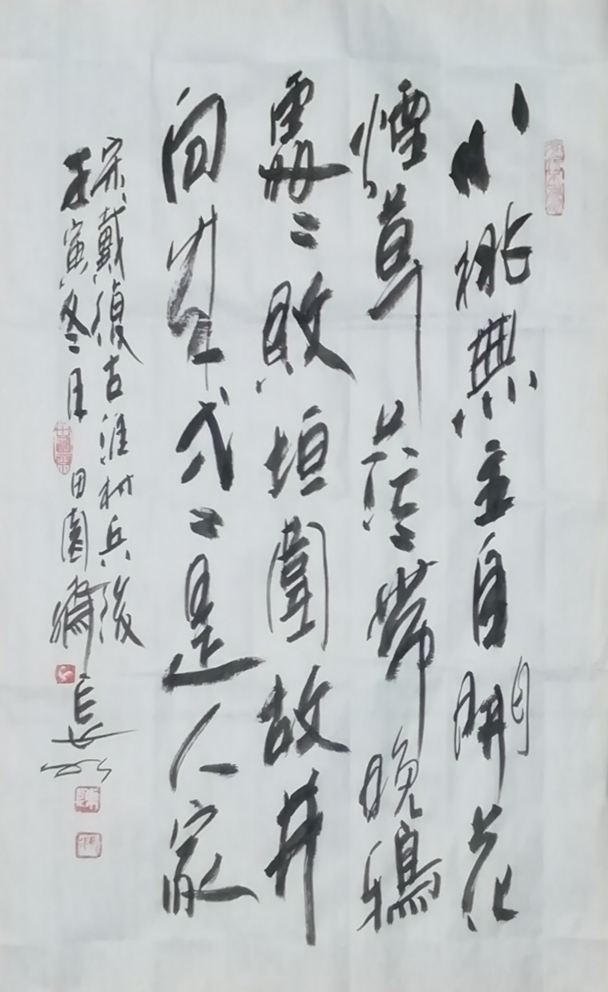 小桃無主自開花
煙草茫々帶晚鴉
處々敗垣圍故井
向來弌々是人家
宋戴復古淮村兵後
壬寅冬月田園